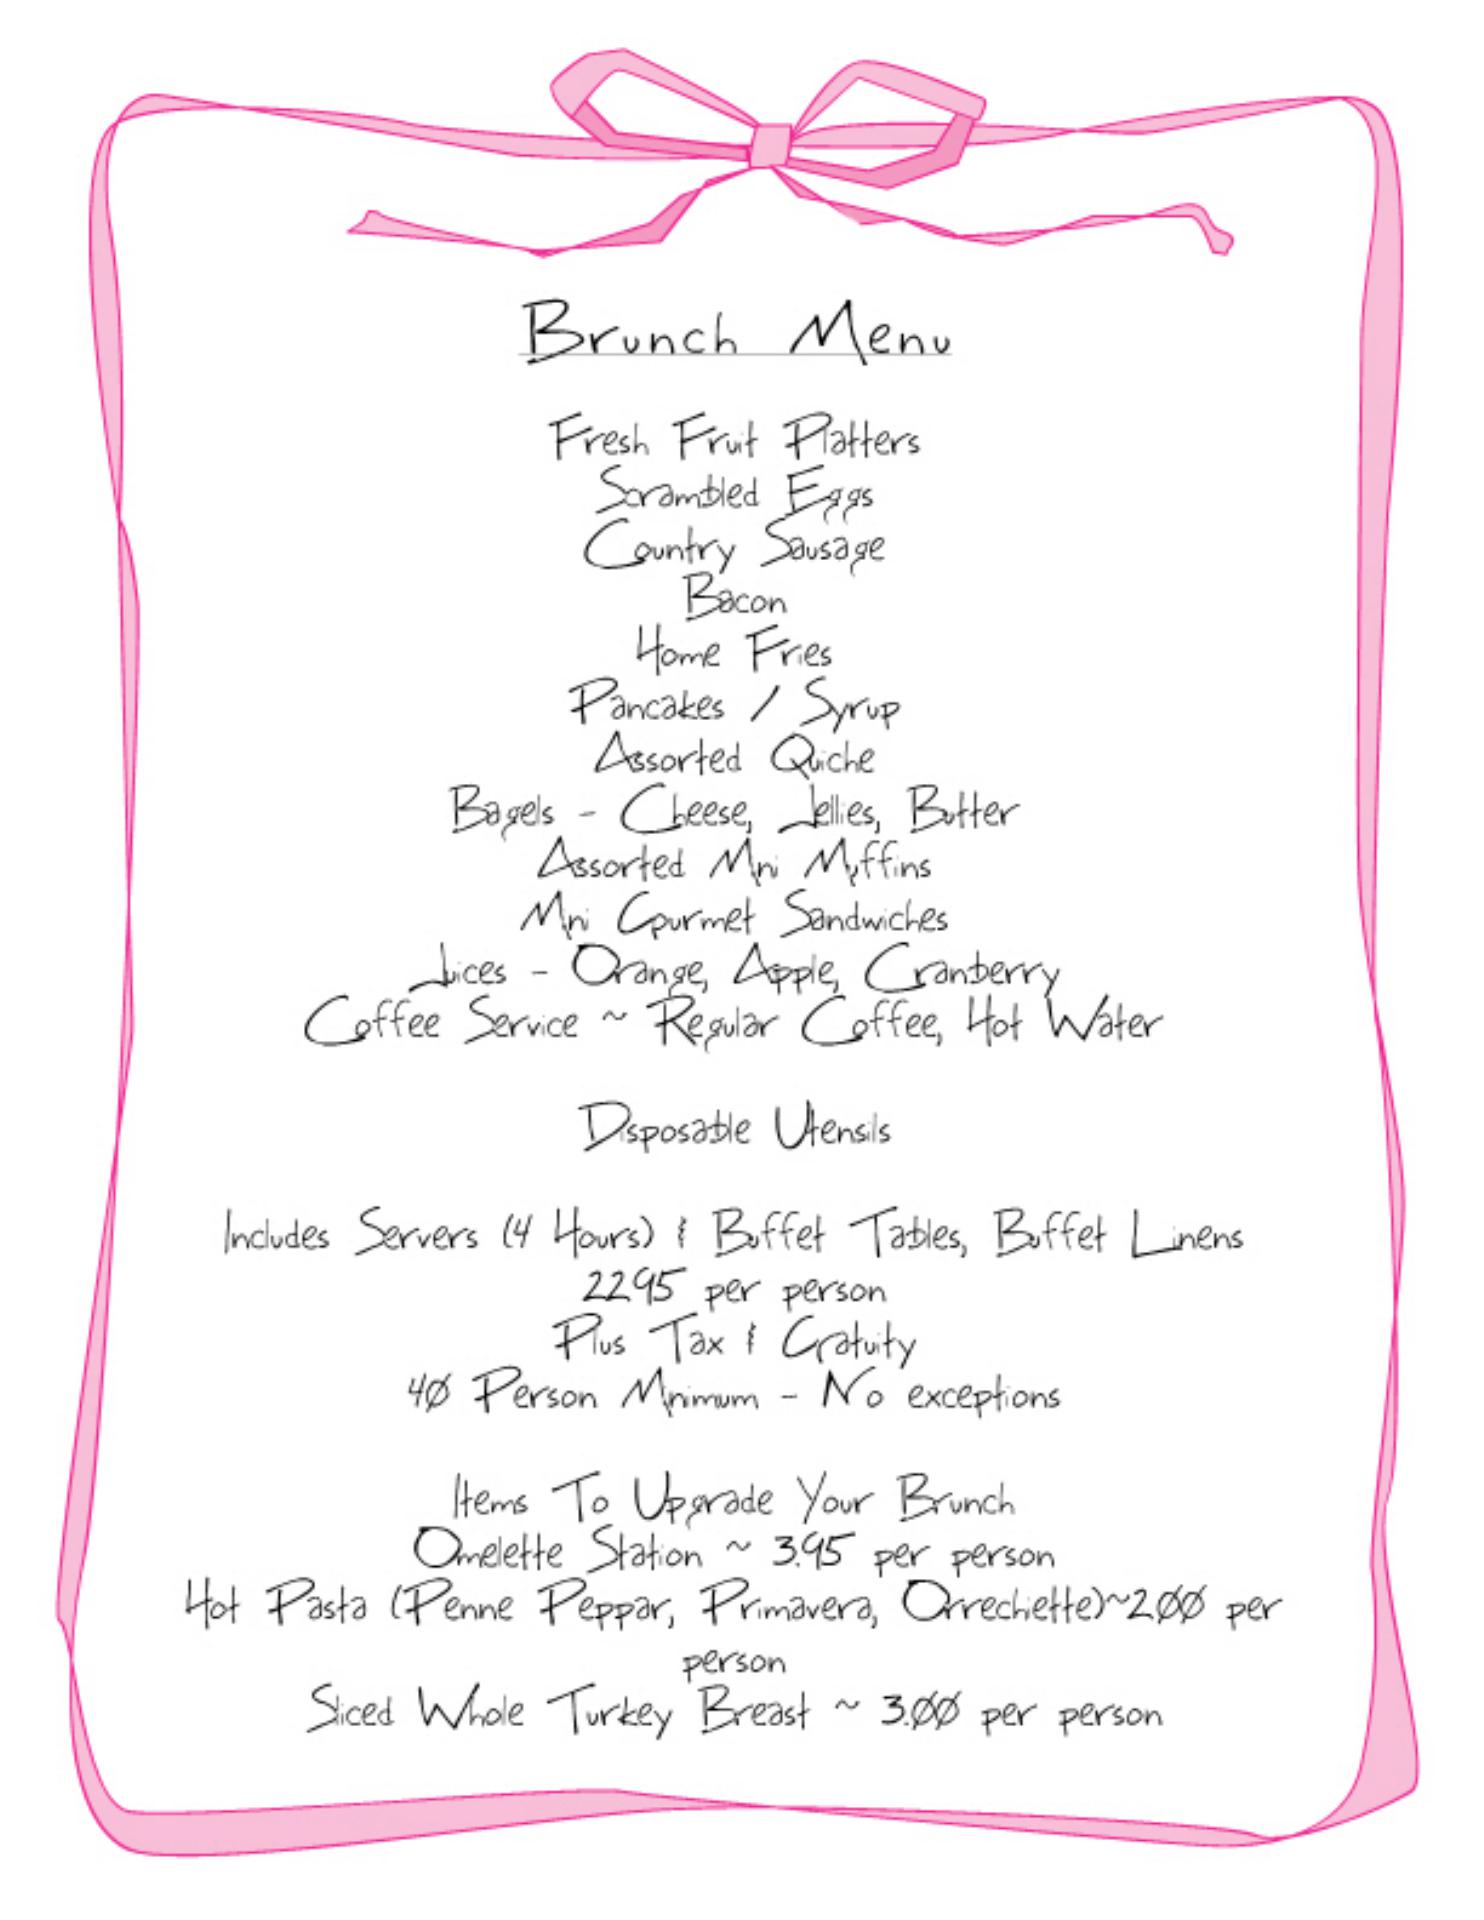 Brunch Menu
Fresh Fruit Platters
Scrambled Eggs
Country Sausage
Bacon
Home Fries
Pancakes / Syrup
Assorted Quiche
Bagels - Cheese, Jellies, Butter
Assorted Mini Muffins
Mini Gourmet Sandwiches
Juices - Orange, Apple, Cranberry
Coffee Service ~ Regular Coffee, Hot Water
Disposable Utensils
Includes Servers (4 Hours) & Buffet Tables, Buffet Linens
22.95 per person
Plus Tax & Gratuity
40 Person Minimum - No exceptions
Items To Upgrade Your Brunch
Omelette Station ~ 3.95 per person
Hot Pasta (Penne Peppar, Primavera, Orrechiette)~2.00 per
person
Sliced Whole Turkey Breast ~ 3.00 per person